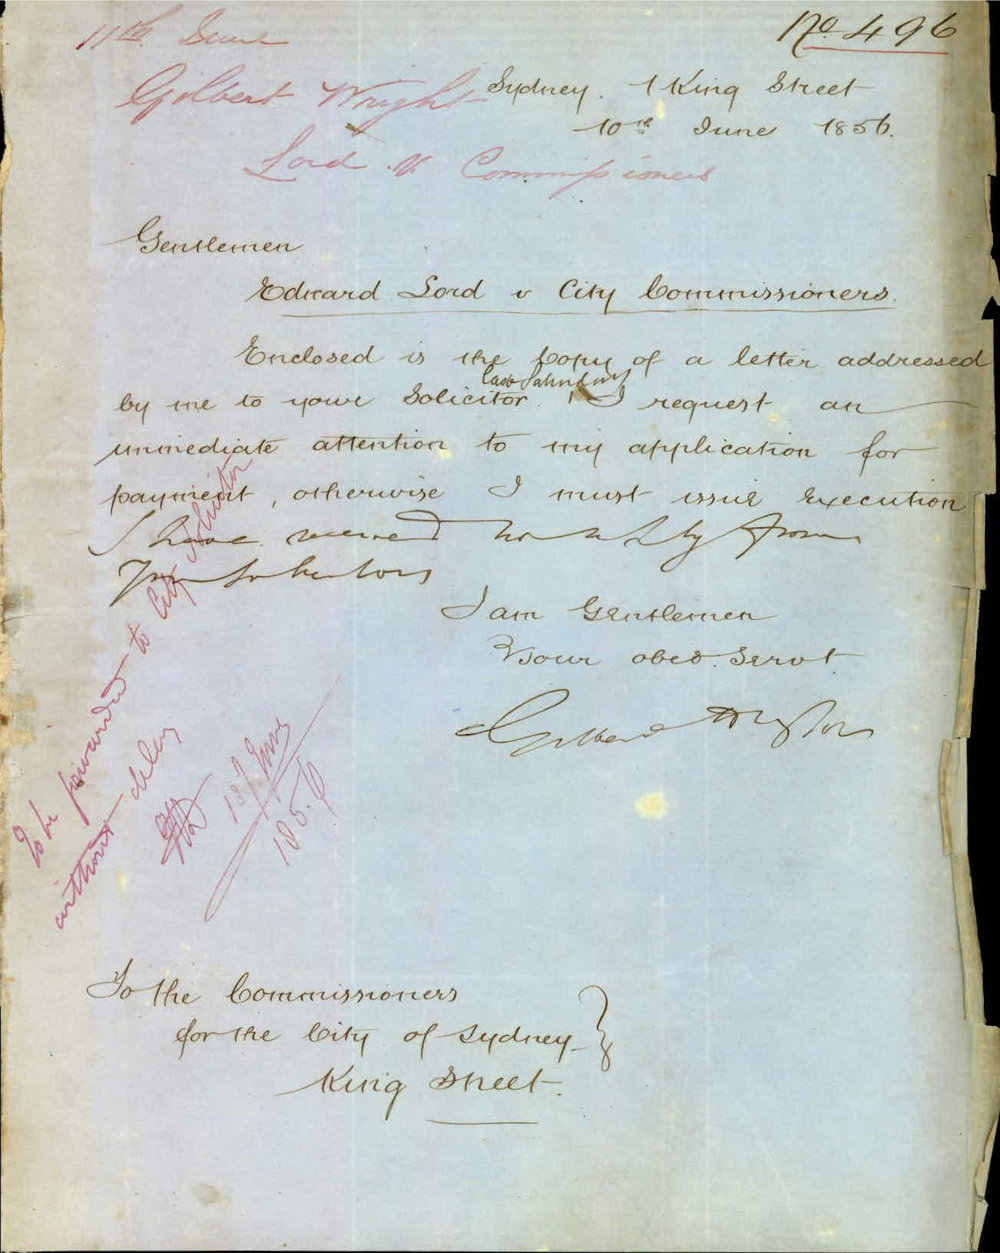 No 496
11th June
Gilbert Wright
Lord v. Commissioners
Sydney. 1 King Street
10th June 1856.
Gentlemen
Edward Lord v City Commissioners.
Enclosed is the Copy of a letter addressed
last Saturday
by me to your Solicitor. I request an
immediate attention to my application for
payment, otherwise I must issue Execution
I have received no reply from
your Solicitors
I am Gentlemen
Your obed. Servt
Gilbert Wright
To be forwarded to City Solicitor
without delay
13 June
185
To the Commissioners
for the City of Sydney
King Street.